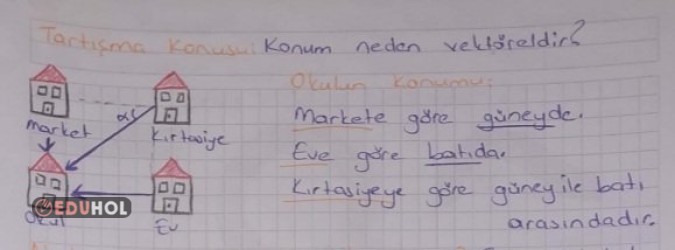 Tartışma Konusu: Konum neden vektöreldir?
Okulun Konumu:
Markete göre güneyde.
Eve göre batıda.
Kırtasiyeye göre güney ile batı
arasındadır.
market
α
Kırtasiye
Okul
Ev
@EDUHOL